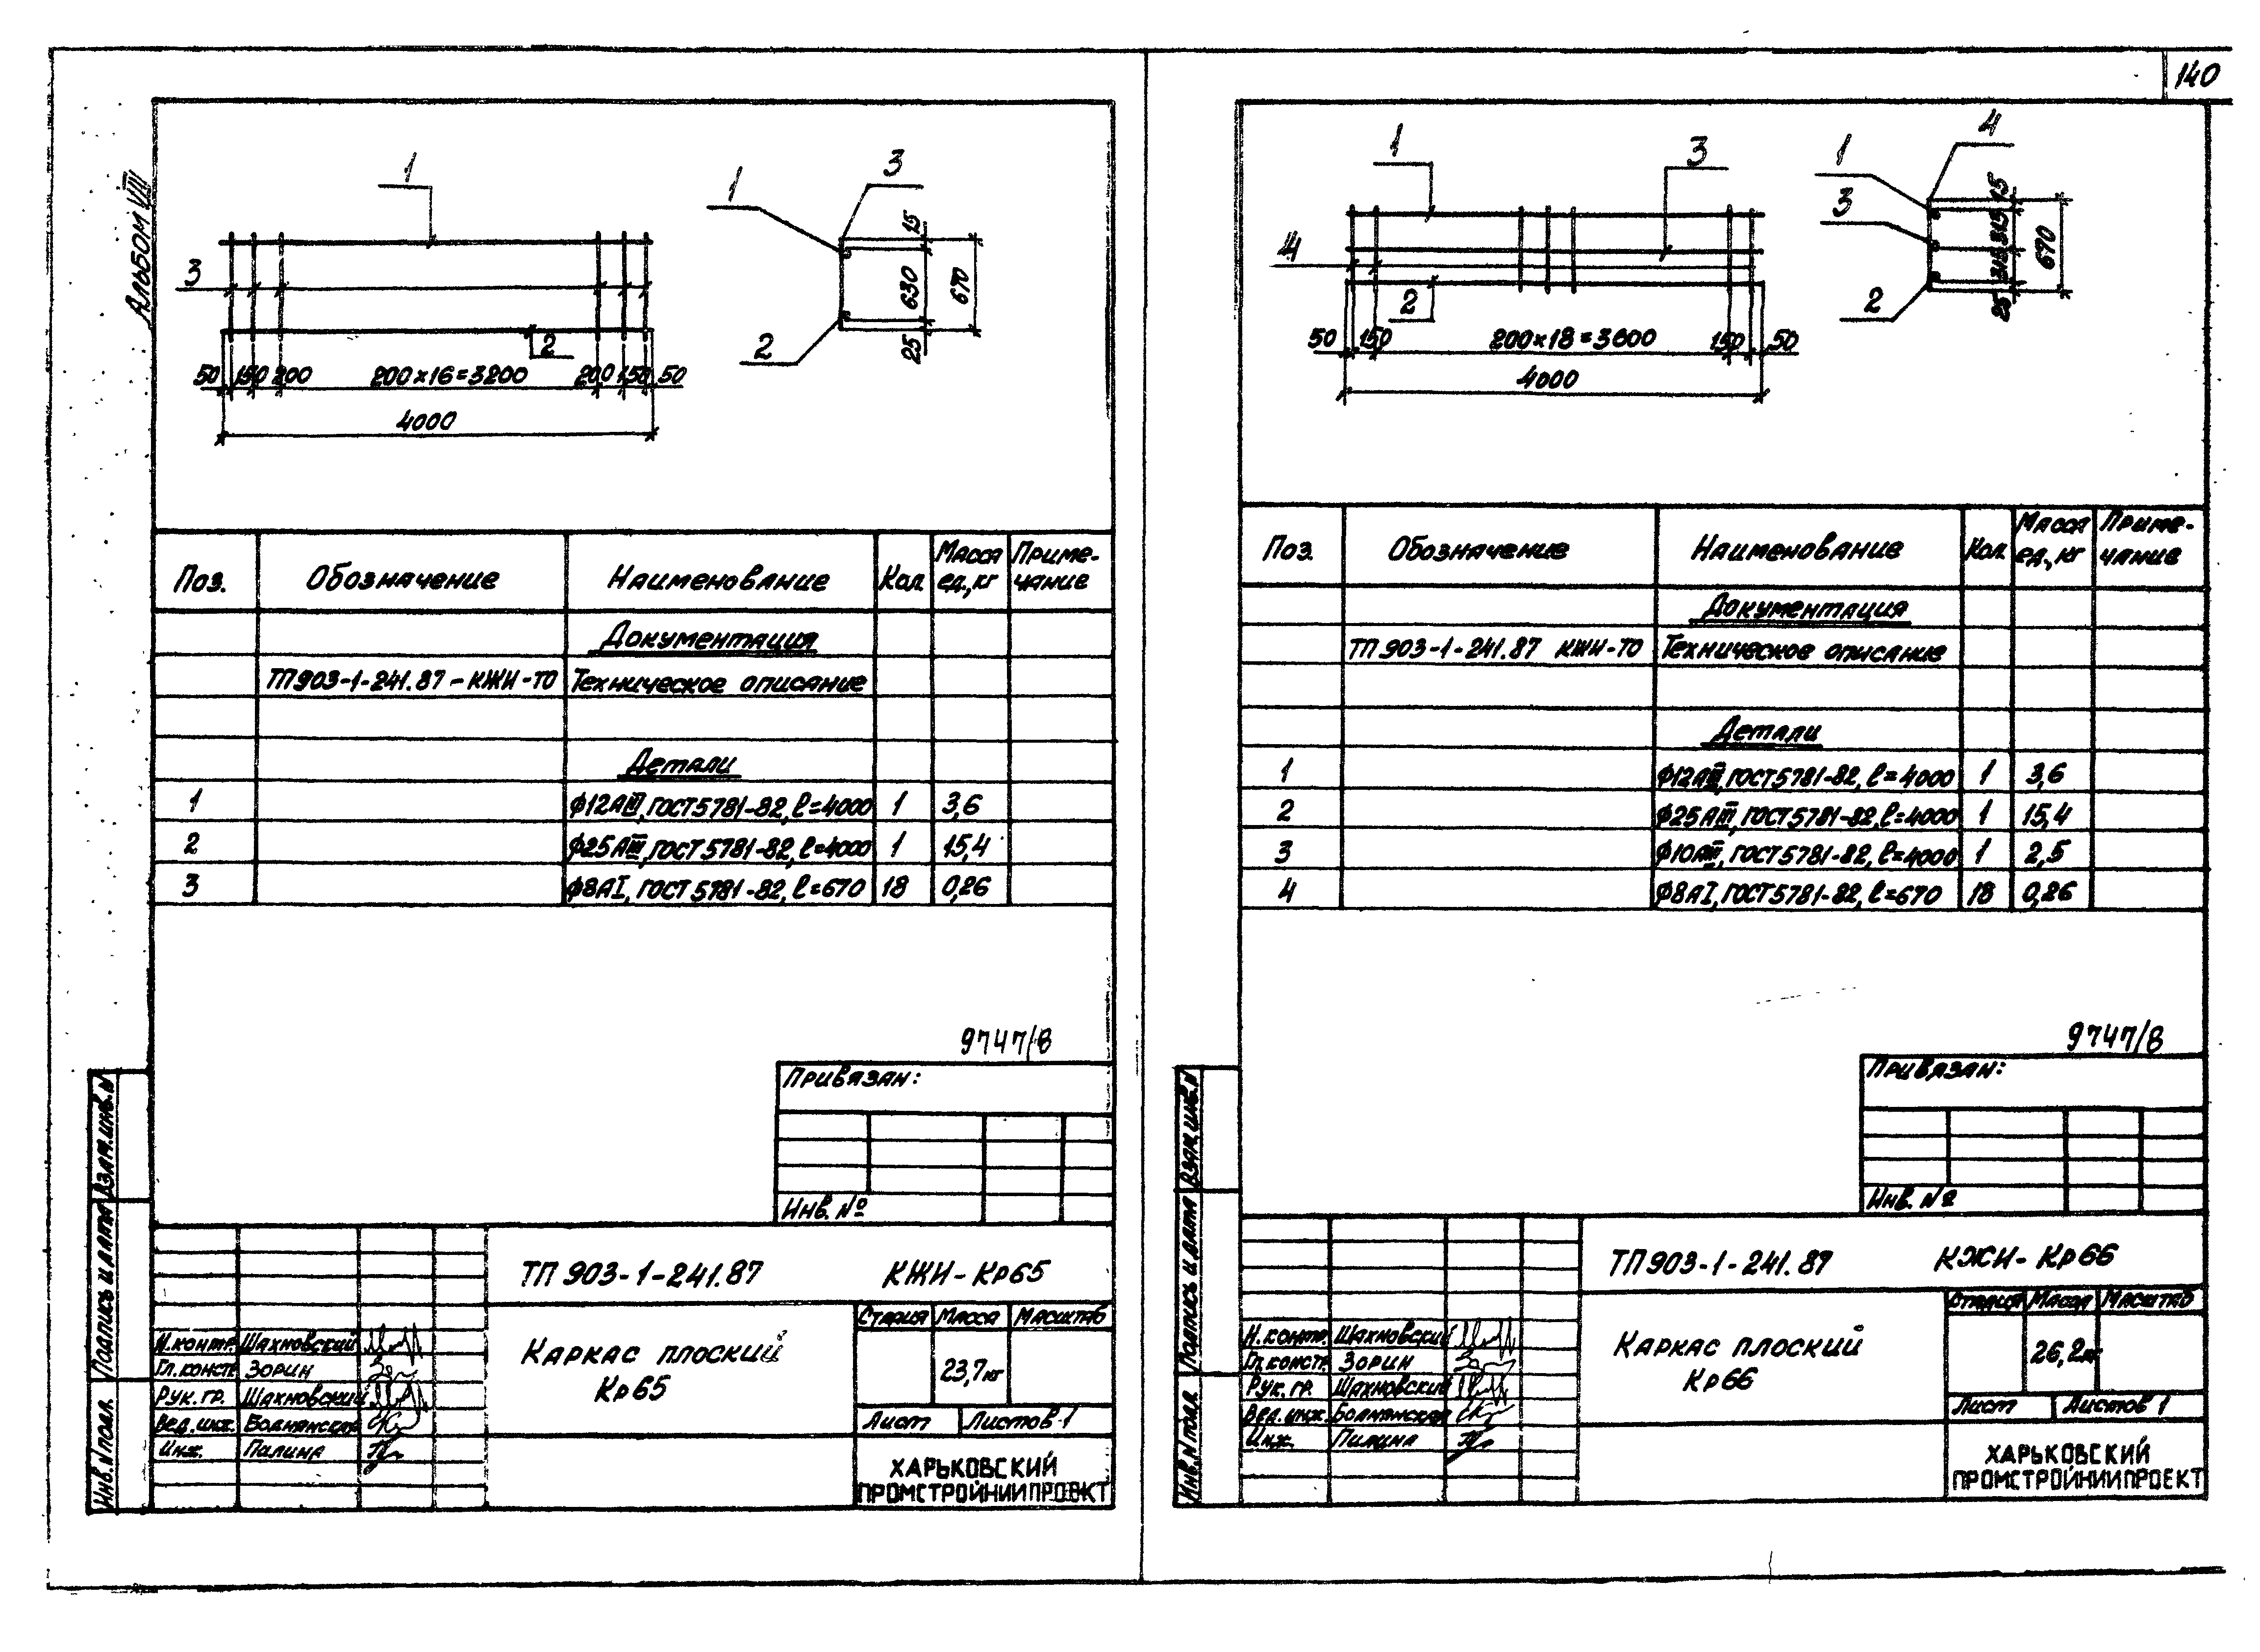 140
Альбом VIII
1
3
2
50 150 200 200×16=3200 200 150 50
4000
1
3
2
15
630
25
670
Поз.
Обозначение
Наименование
Кол
Масса ед., кг
Приме-
чание
Документация
ТП903-1-241.87-КЖИ-ТО Техническое описание
Детали
1 ф12АIII, ГОСТ5781-82, l=4000 1 3,6
2 ф25АIII, ГОСТ5781-82, l=4000 1 15,4
3 ф8АI, ГОСТ5781-82, l=670 18 0,26
9747/8
Привязан:
Инв. №
ТП 903-1-241.87 КЖИ-Кр65
Каркас плоский
Кр65
Стадия Масса Масштаб
23,7кг
Лист Листов 1
ХАРЬКОВСКИЙ
ПРОМСТРОЙНИИПРОЕКТ
Н.контр. Шахновский
Гл.констр. Зорин
Рук. гр. Шахновский
Вед. инж. Волнянская
Инж. Палина
Взам. инв. N
Подпись и дата
Инв. N подл.
1
3
4
2
50 150 200×18=3600 150 50
4000
4
1
3
2
15
315
315
25
670
Поз.
Обозначение
Наименование
Кол
Масса ед., кг
Приме-
чание
Документация
ТП903-1-241.87 КЖИ-ТО Техническое описание
Детали
1 ф12АIII, ГОСТ5781-82, l=4000 1 3,6
2 ф25АIII, ГОСТ5781-82, l=4000 1 15,4
3 ф10АIII, ГОСТ5781-82, l=4000 1 2,5
4 ф8АI, ГОСТ5781-82, l=670 18 0,26
9747/8
Привязан:
Инв. №
ТП903-1-241.87 КЖИ-Кр66
Каркас плоский
Кр66
Стадия Масса Масштаб
26,2кг
Лист Листов 1
ХАРЬКОВСКИЙ
ПРОМСТРОЙНИИПРОЕКТ
Н.контр. Шахновский
Гл.констр. Зорин
Рук. гр. Шахновский
Вед. инж. Волнянская
Инж. Пилина
Взам. инв. N
Подпись и дата
Инв. N подл.